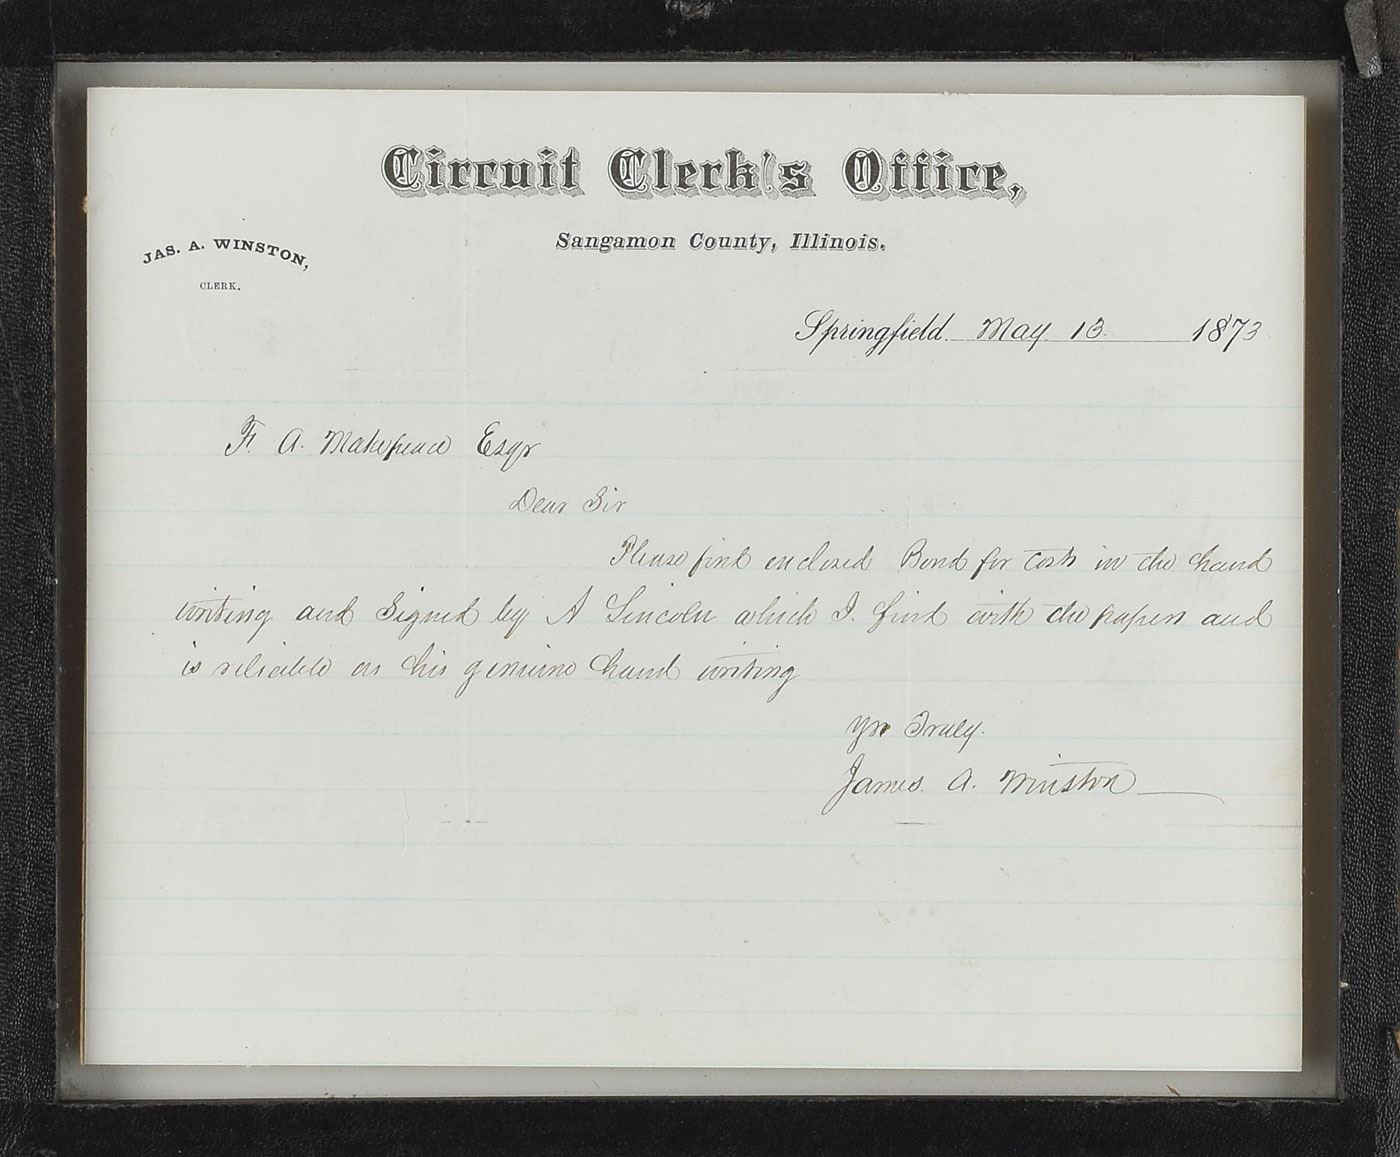 Circuit Clerk's Office,
Sangamon County, Illinois.
JAS. A. WINSTON,
CLERK.
Springfield. May. 13. 1873
F. A. Makepeace Esqr
Dear Sir
Please find enclosed Bond for Costs in the hand
writing and Signed by A Lincoln which I. find with the papers and
is reliable as his genuine hand writing
Yrs Truly.
James. A. Winston